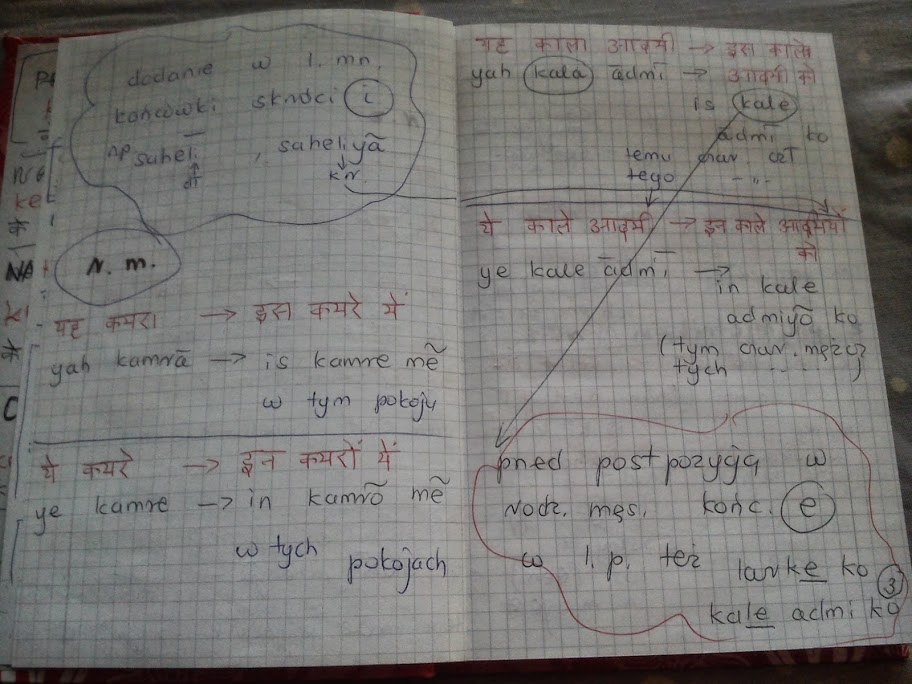 dodanie w l. mn.
końcówki skrości i
np saheli, saheliyã
dł kr.
N. m.
यह कमरा → इस कमरे में
yah kamrā → is kamre mẽ
w tym pokoju
ये कमरे → इन कमरों में
ye kamre → in kamrõ mẽ
w tych pokojach
यह काला आदमी → इस काले
yah kala ādmī → आदमी को
is kale
admī ko
temu czar. czł
tego -"-
ये काले आदमी → इन काले आदमियों
को
ye kale ādmī →
in kale
admiyõ ko
(tym czar. mężcz
tych ..... )
przed postpozycją w
rodz. męs. końc. e
w l. p. też larke ko
3
kale admi ko